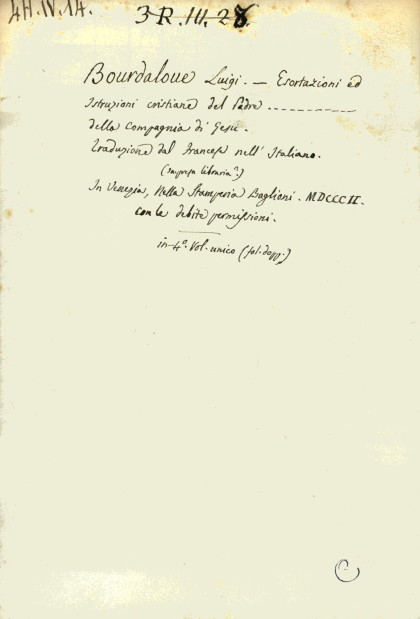 4H.IV.14.
3-R.III.28.
Bourdaloue Luigi. — Esortazioni ed
Istruzioni cristiane del Padre ------------
della Compagnia di Gesù.
Traduzione dal Francese nell' Italiano.
(impresa libraria.)
In Venezia, Nella Stamperia Baglioni. MDCCCII.
con le debite permissioni.
in 4º. Vol. unico (fol. dopp.)
C